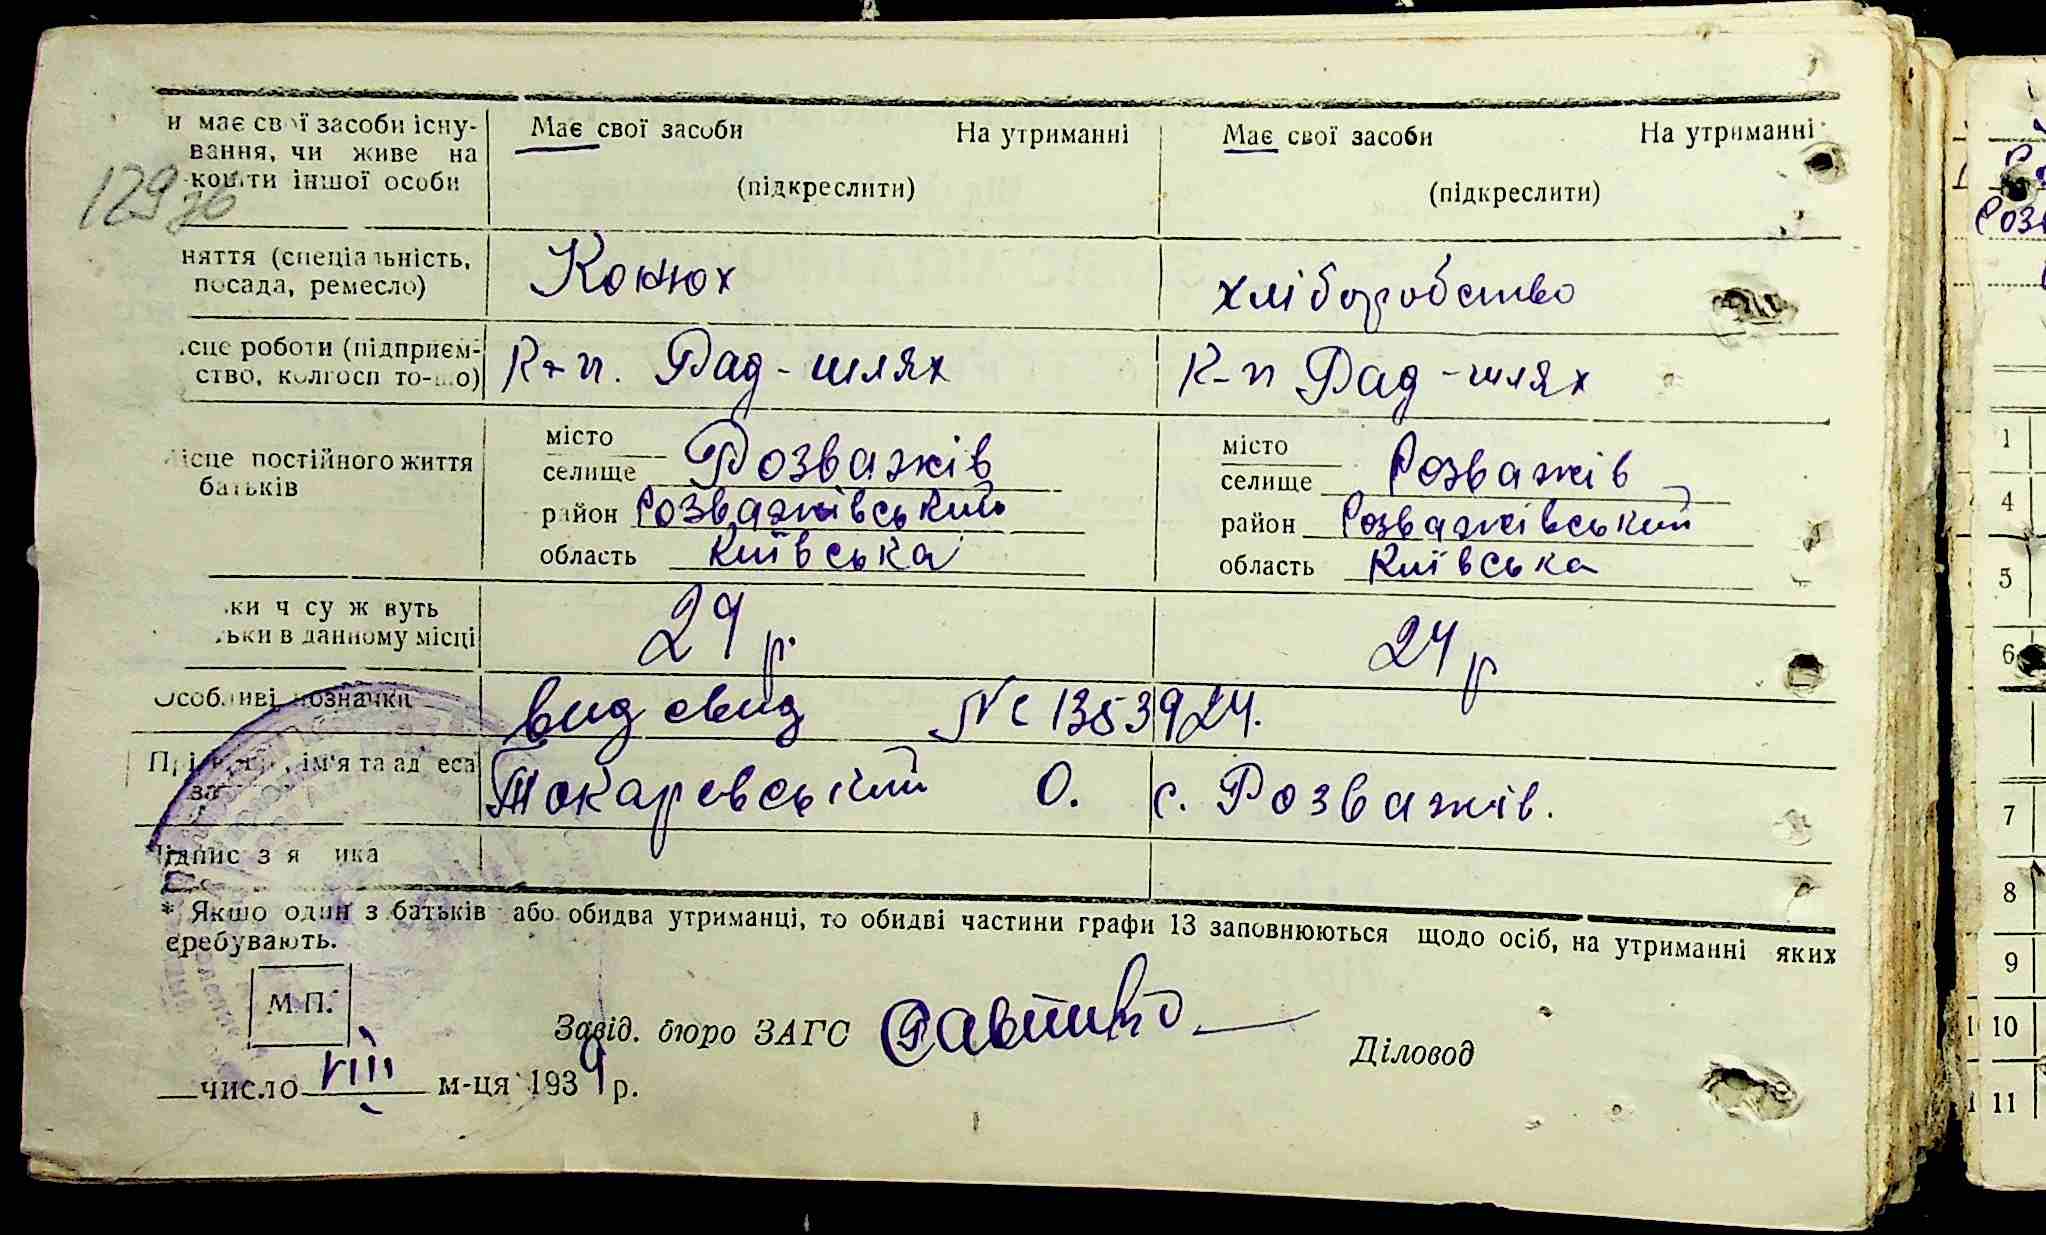 и має свої засоби існу-
вання, чи живе на
кошти іншої особи
Має свої засоби На утриманні
(підкреслити)
Має свої засоби На утриманні
(підкреслити)
129 зв
няття (спеціальність,
посада, ремесло)
Конюх
хліборобство
сце роботи (підприєм-
ство, колгосп то-що)
К-п. Рад-шлях
К-п Рад-шлях
ісце постійного життя
батьків
місто
селище Розважів
район Розважівський
область Київська
місто
селище Розважів
район Розважівський
область Київська
ки ч су ж вуть
тьки в данному місці
29 р.
24 р
Особливі позначки
вид свид № 1353924.
Прізвище, ім'я та ад еса
за
Токаревський О. с. Розважів.
Підпис з я ика
* Якшо один з батьків або обидва утриманці, то обидві частини графи 13 заповнюються щодо осіб, на утриманні яких
еребувають.
М.П.
Завід. бюро ЗАГС
Діловод
число VIII м-ця 1939 р.
Розв
1
4
5
6
7
8
9
10
11